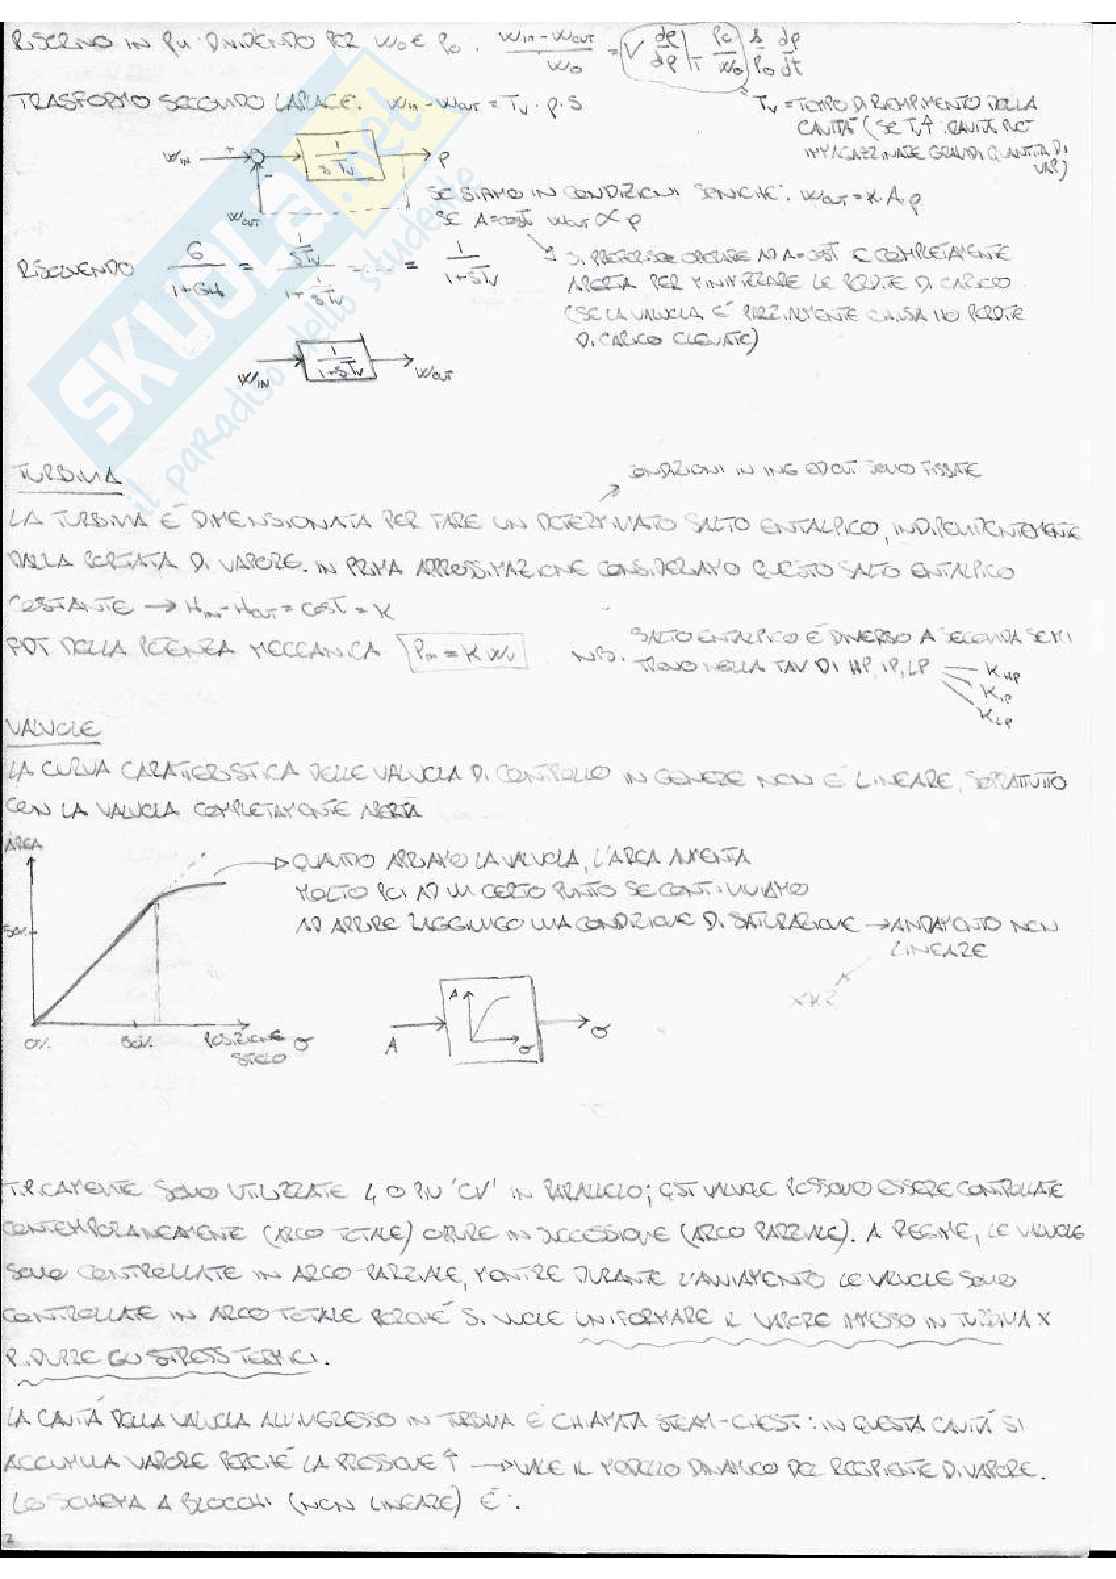 RISCRIVO IN PU DIVIDENDO PER W₀ E P₀. (Win - Wout)/W₀ = V dρ/dp|T P₀/W₀ 1/P₀ dp/dt
TRASFORMO SECONDO LAPLACE. Win - Wout = Tv · p · s
Tv = TEMPO DI RIEMPIMENTO DELLA
CAVITÀ (SE Tv↑ CAVITÀ PUÒ
IMMAGAZZINARE GRANDI QUANTITÀ DI
VAP)
WIN + 1/sTv p
- WOUT
SE SIAMO IN CONDIZIONI SONICHE: WOUT = K·A·p
SE A=cost WOUT ∝ p
RISOLVENDO G/(1+GH) = (1/sTv)/(1+1/sTv) = ... = 1/(1+sTv)
SI PREFERISCE OPERARE AD A=COST E COMPLETAMENTE
APERTA PER MINIMIZZARE LE PERDITE DI CARICO
(SE LA VALVOLA È PARZIALMENTE CHIUSA HO PERDITE
DI CARICO ELEVATE)
WIN 1/(1+sTv) WOUT
TURBINA
CONDIZIONI IN ING ED OUT SONO FISSATE
LA TURBINA È DIMENSIONATA PER FARE UN DETERMINATO SALTO ENTALPICO, INDIPENDENTEMENTE
DALLA PORTATA DI VAPORE. IN PRIMA APPROSSIMAZIONE CONSIDERIAMO QUESTO SALTO ENTALPICO
COSTANTE → Hin - Hout = COST = K
FDT DELLA POTENZA MECCANICA Pm = K Wv
N.B. SALTO ENTALPICO È DIVERSO A SECONDA SE MI
TROVO NELLA TAV DI HP, IP, LP KHP
KIP
KLP
VALVOLE
LA CURVA CARATTERISTICA DELLE VALVOLA DI CONTROLLO IN GENERE NON È LINEARE, SOPRATTUTTO
CON LA VALVOLA COMPLETAMENTE APERTA
AREA
QUANDO APRIAMO LA VALVOLA, L'AREA AUMENTA
MOLTO POI AD UN CERTO PUNTO SE CONTINUIAMO
AD APRIRE RAGGIUNGO UNA CONDIZIONE DI SATURAZIONE → ANDAMENTO NON
LINEARE
50%
0% 50% POSIZIONE STELO σ
A A σ σ
TIPICAMENTE SONO UTILIZZATE 4 O PIÙ 'CV' IN PARALLELO; QST VALVOLE POSSONO ESSERE CONTROLLATE
CONTEMPORANEAMENTE (ARCO TOTALE) OPPURE IN SUCCESSIONE (ARCO PARZIALE). A REGIME, LE VALVOLE
SONO CONTROLLATE IN ARCO PARZIALE, MENTRE DURANTE L'AVVIAMENTO LE VALVOLE SONO
CONTROLLATE IN ARCO TOTALE PERCHÉ SI VUOLE UNIFORMARE IL VAPORE IMMESSO IN TURBINA X
RIDURRE GLI STRESS TERMICI.
LA CAVITÀ DELLA VALVOLA ALL'INGRESSO IN TURBINA È CHIAMATA STEAM-CHEST: IN QUESTA CAVITÀ SI
ACCUMULA VAPORE PERCHÉ LA PRESSIONE ↑ → VALE IL MODELLO DINAMICO DEL RECIPIENTE DI VAPORE.
LO SCHEMA A BLOCCHI (NON LINEARE) È:
2
SKUOLA.net
il paradiso dello studente